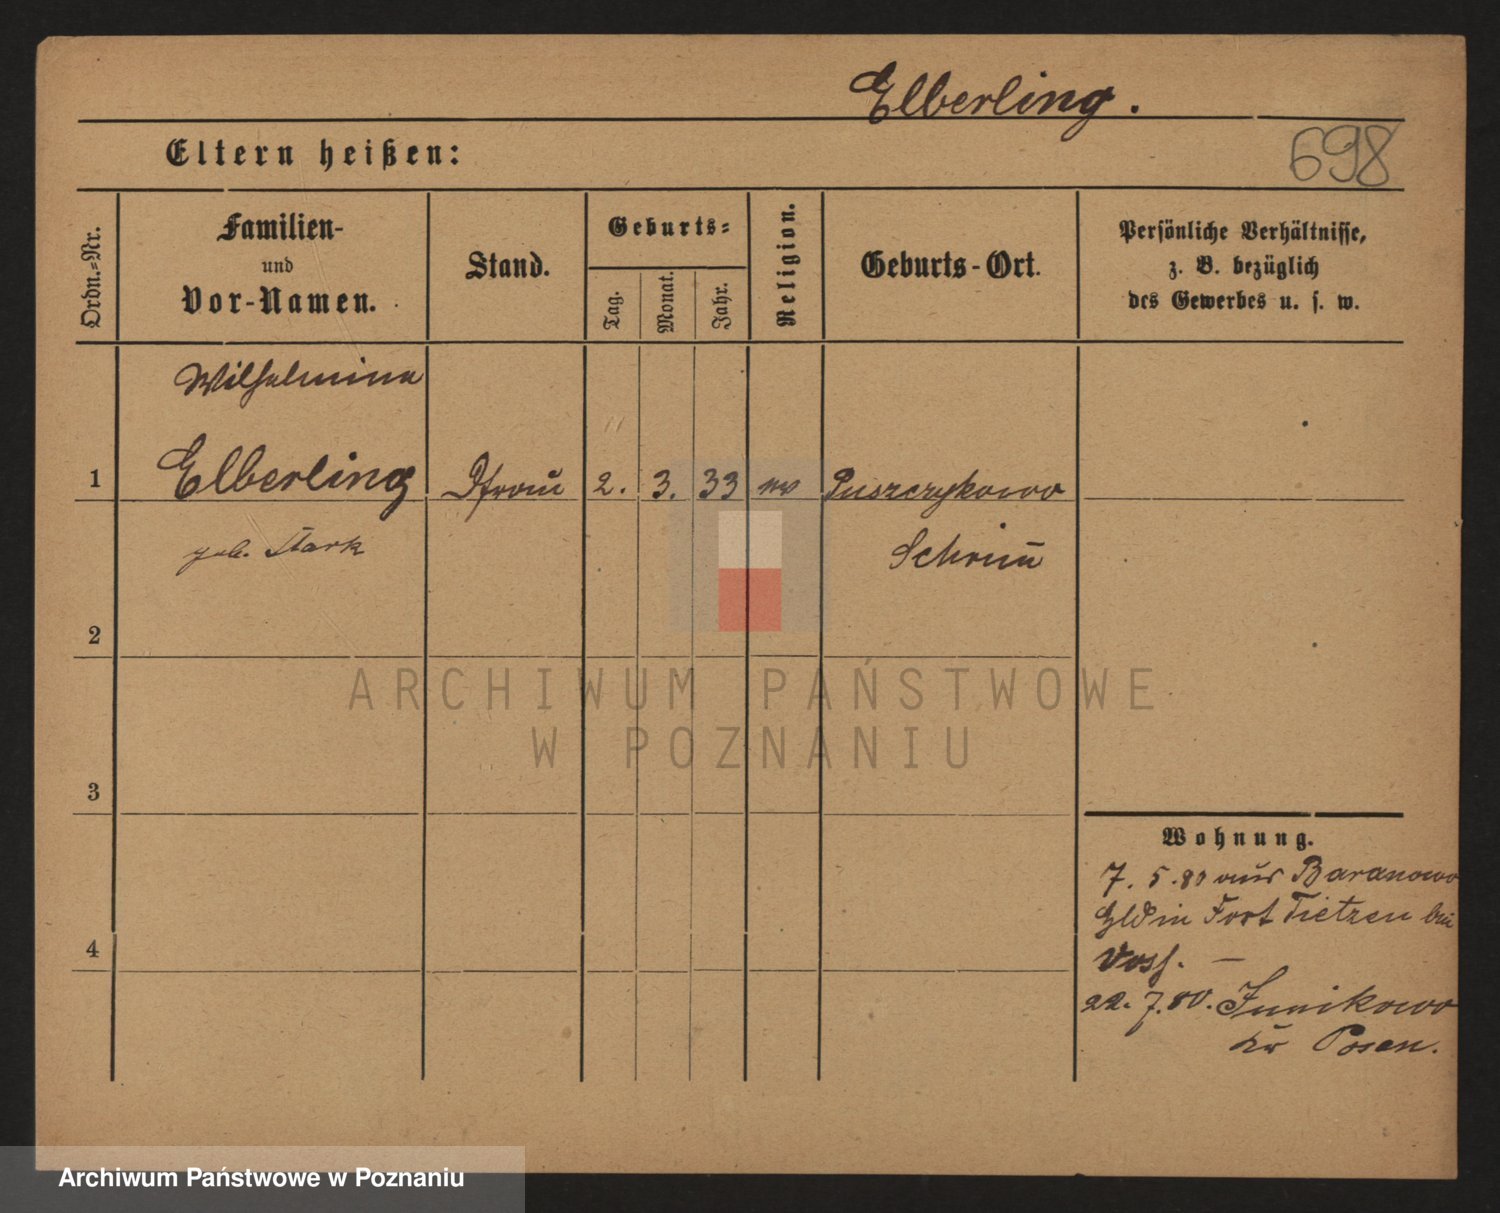 Elberling.
698
Eltern heißen:
Ordn.=Nr.
Familien-
und
Vor-Namen.
Stand.
Geburts=
Tag.
Monat.
Jahr.
Religion.
Geburts-Ort.
Persönliche Verhältnisse,
z. B. bezüglich
des Gewerbes u. s. w.
Wilhelmine
1 Elberling 2. 3. 33 ev Puszczykowo
geb. Stark Schrim
2
3
4
Wohnung.
7. 5. 80 aus Baranowo
in Fort Tietzen bei
22. 7. 80. Junikowo
Kr Posen.
ARCHIWUM PAŃSTWOWE
W POZNANIU
Archiwum Państwowe w Poznaniu